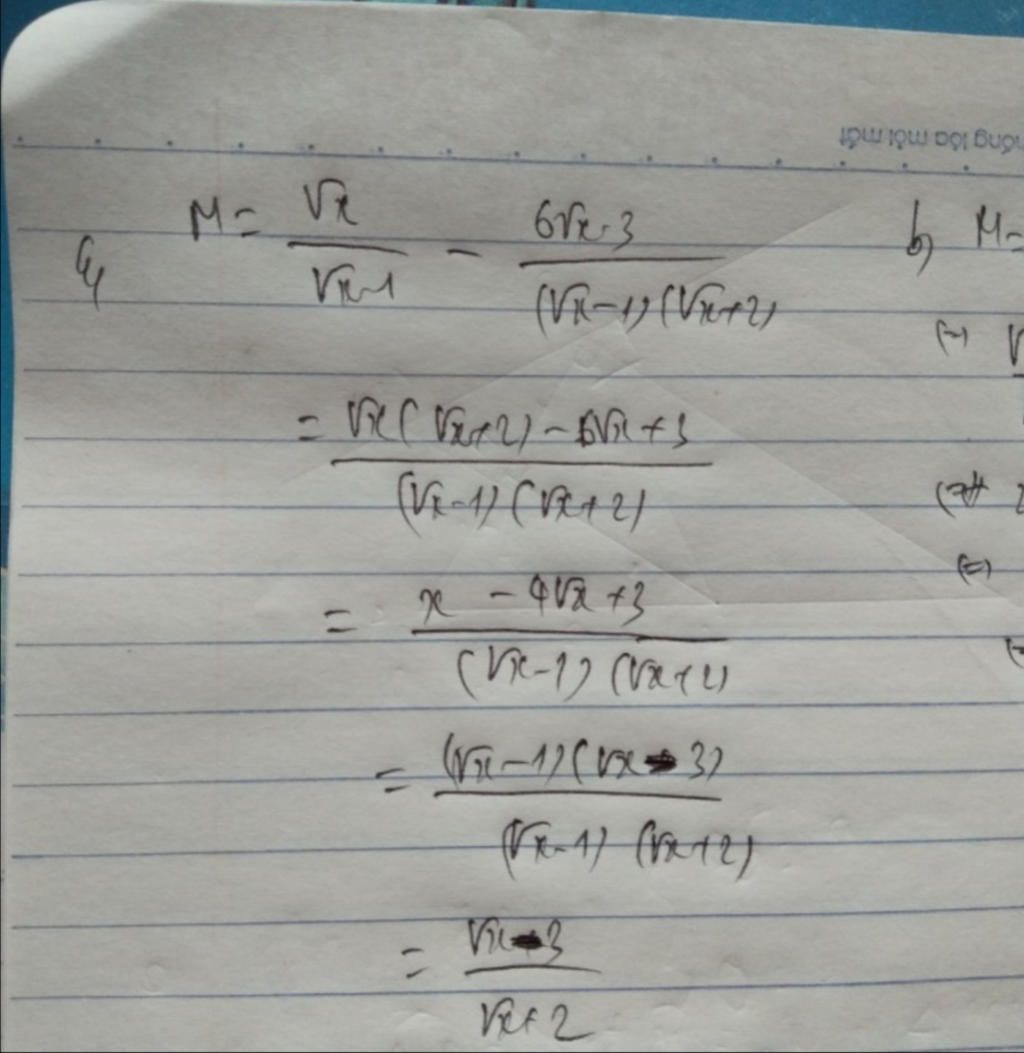 hống lóa mỏi mắt
a, M = √x / (√x-1) - (6√x-3) / ((√x-1)(√x+2))
= (√x(√x+2)-6√x+3) / ((√x-1)(√x+2))
= (x -4√x+3) / ((√x-1)(√x+2))
= ((√x-1)(√x-3)) / ((√x-1)(√x+2))
= (√x-3) / (√x+2)
b, M=